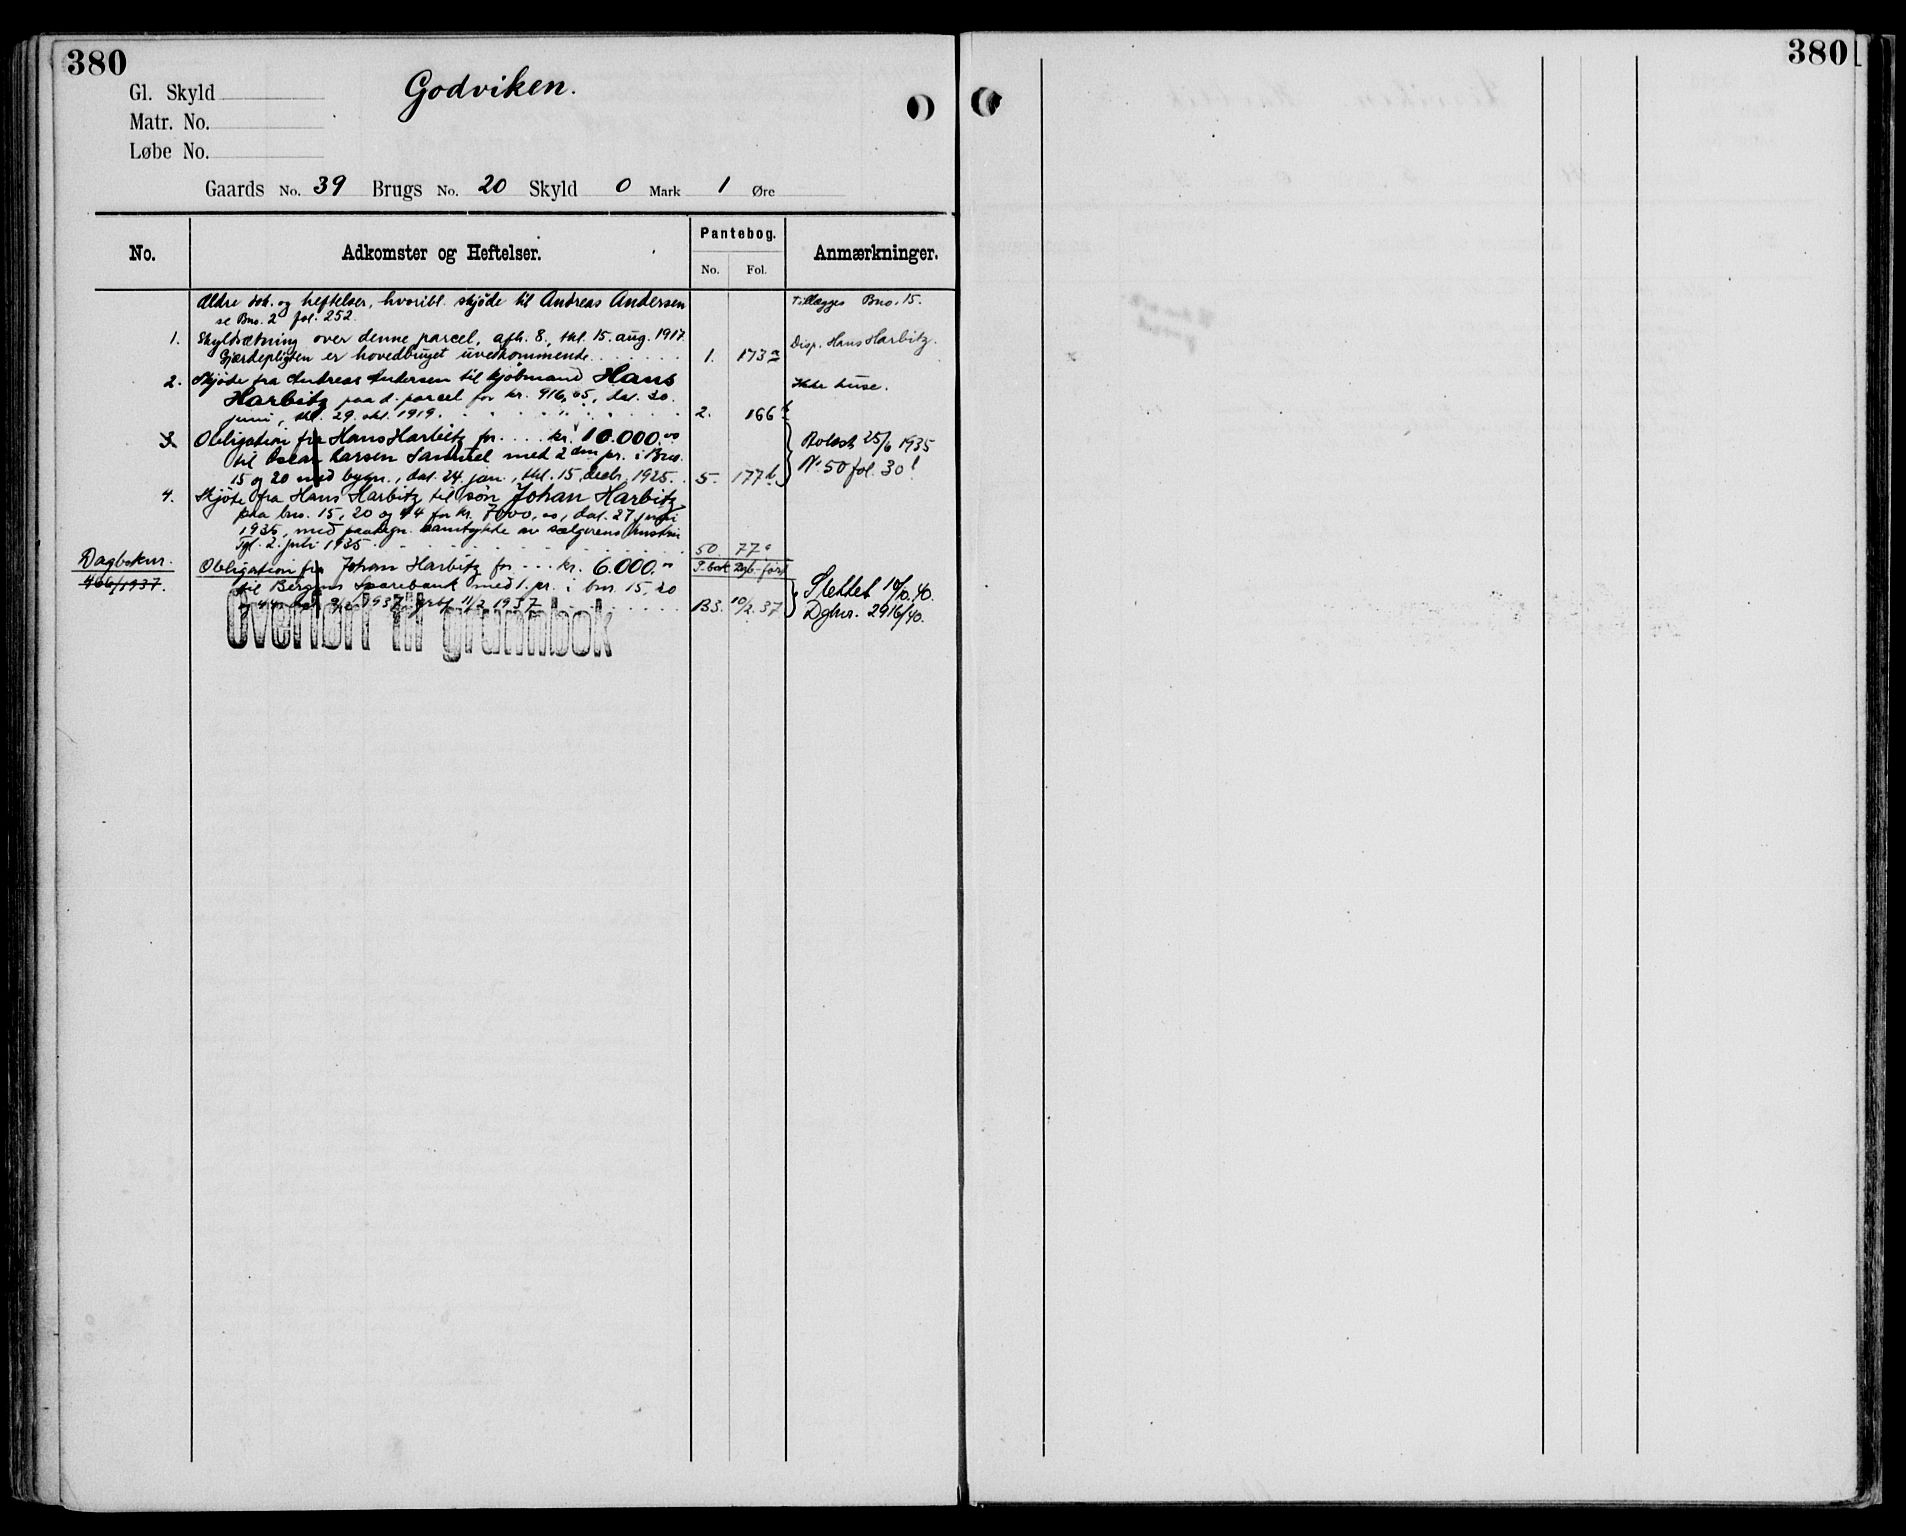 380
Gl. Skyld
Godviken.
Matr. No.
Løbe No.
Gaards No. 39 Brugs No. 20 Skyld 0 Mark 1 Øre
No. Adkomster og Heftelser. Pantebog. No. Fol. Anmærkninger.
Ældre dok. og heftelser, hvoribl. skjöde til Andreas Andersen
se Bno. 2 fol. 252.
Tillægges Bno. 15.
1. Skyldsætning over denne parcel, afh. 8., thl. 15. aug. 1917.
Gjærdepligten er hovedbruget uvedkommende. 1. 173a
Disp. Hans Harbitz.
2. Skjöde fra Andreas Andersen til kjöbmand Hans
Harbitz paa d. parcel for kr. 916,65, dat. 30.
juni, thl. 29. okt. 1919. 2. 166b
Ikke huse.
3. Obligation fra Hans Harbitz for kr. 10.000.00
til Oscar Larsen Samdal med 2den pr. i Bno.
15 og 20 med bygn., dat. 24. jan., thl. 15. decbr. 1925. 5. 177b
Avlest 25/6 1935
No 50 fol. 30
4. Skjöte fra Hans Harbitz til søn Johan Harbitz
paa bno. 15, 20 og 44 for kr. 7000,00, dat. 27 juni
1935, med paategn. samtykke av sælgerens hustru
Tgl. 2. juli 1935. 50. 77a
P.bok Dagb. ført
Dagboknr.
466/1937.
Obligation fra Johan Harbitz for kr. 6.000.00
til Bergens Sparebank med 1. pr. i bnr. 15, 20
og 44 dat. 9/2 1937 1937 B3. 10/2 37
Slettet 10/10.40.
Dgbnr. 2916/40.
Overført til grunnbok
380